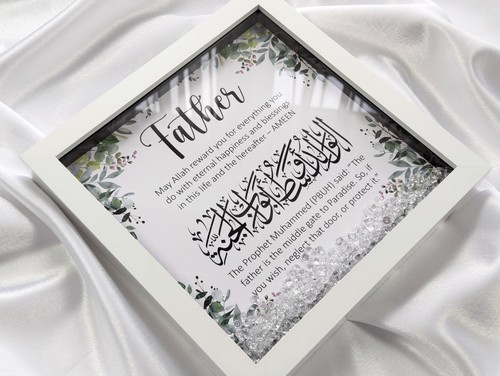 Father
May Allah reward you for everything you
do with eternal happiness and blessings
in this life and the hereafter – AMEEN
الوالد أوسط أبواب الجنة
The Prophet Muhammed (PBUH) said: "The
father is the middle gate to Paradise. So, if
you wish, neglect that door, or protect it."